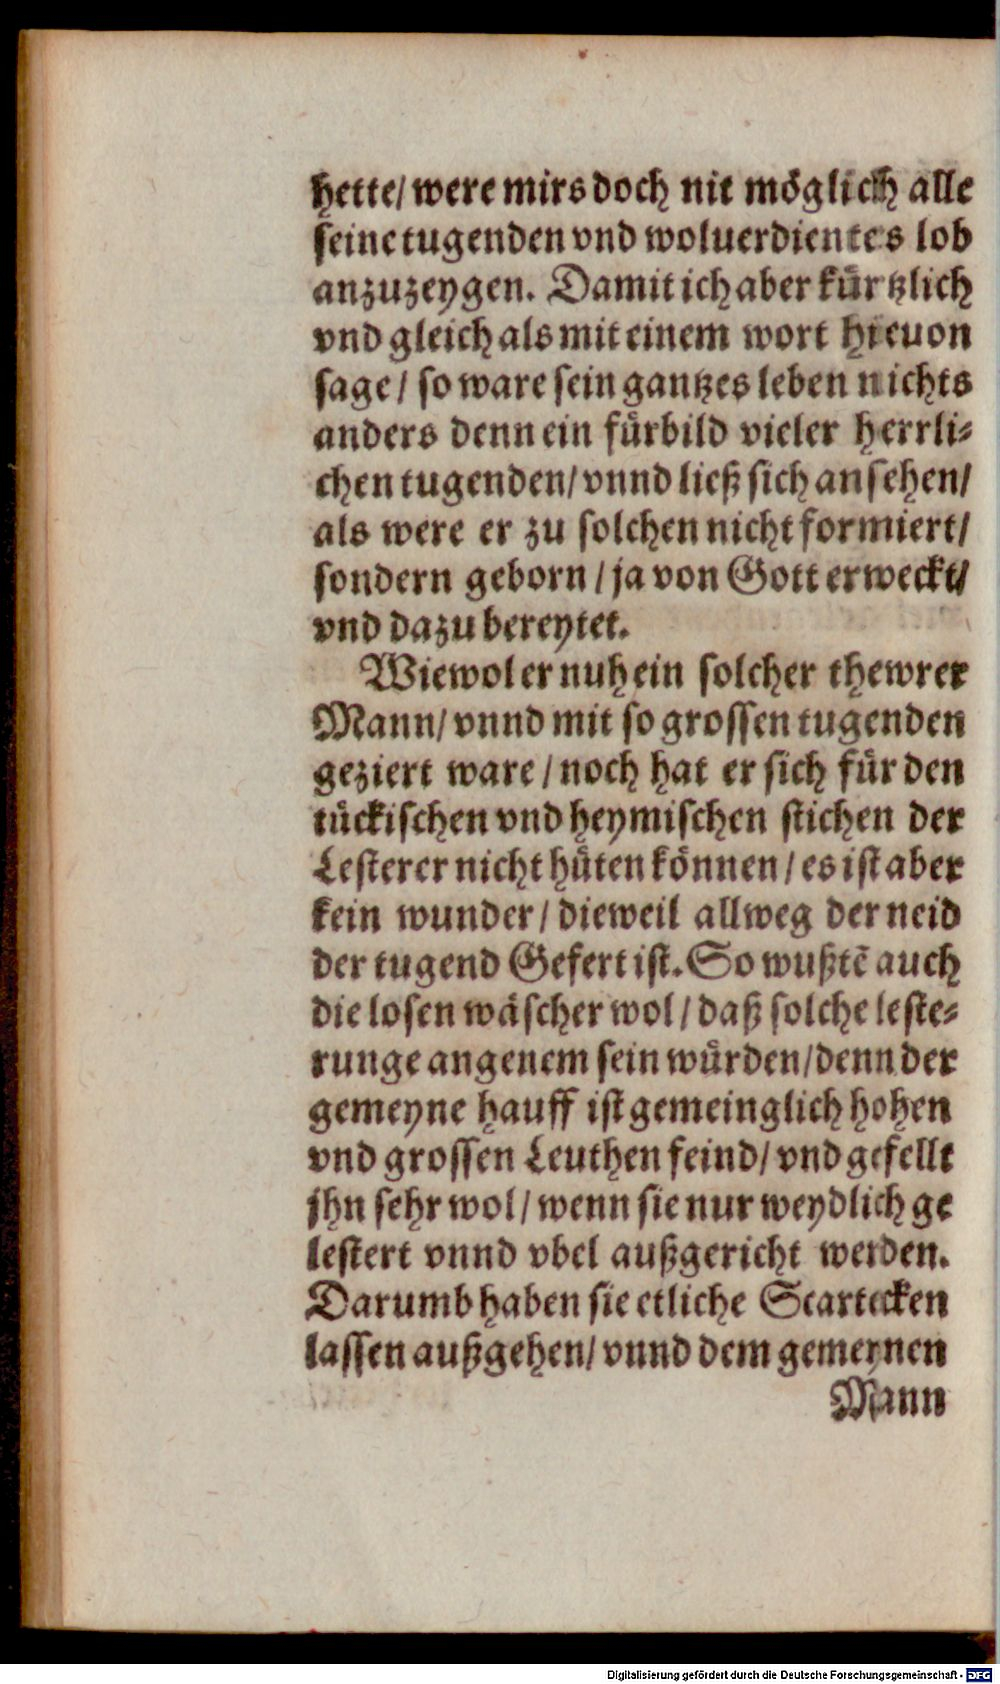 hette/ were mirs doch nit möglich alle
seine tugenden vnd woluerdientes lob
anzuzeygen. Damit ich aber kürtzlich
vnd gleich als mit einem wort hieuon
sage/ so ware sein gantzes leben nichts
anders denn ein fürbild vieler herrli-
chen tugenden/ vnnd ließ sich ansehen/
als were er zu solchen nicht formiert/
sondern geborn/ ja von Gott erweckt/
vnd dazu bereytet.
Wiewol er nuh ein solcher thewrer
Mann/ vnnd mit so grossen tugenden
geziert ware/ noch hat er sich für den
tückischen vnd heymischen stichen der
Lesterer nicht hüten können/ es ist aber
kein wunder/ dieweil allweg der neid
der tugend Gefert ist. So wußtē auch
die losen wäscher wol/ daß solche leste-
runge angenem sein würden/ denn der
gemeyne hauff ist gemeinglich hohen
vnd grossen Leuthen feind/ vnd gefellt
jhn sehr wol/ wenn sie nur weydlich ge
lestert vnnd vbel außgericht werden.
Darumb haben sie etliche Scartecken
lassen außgehen/ vnnd dem gemeynen
Mann
Digitalisierung gefördert durch die Deutsche Forschungsgemeinschaft - DFG